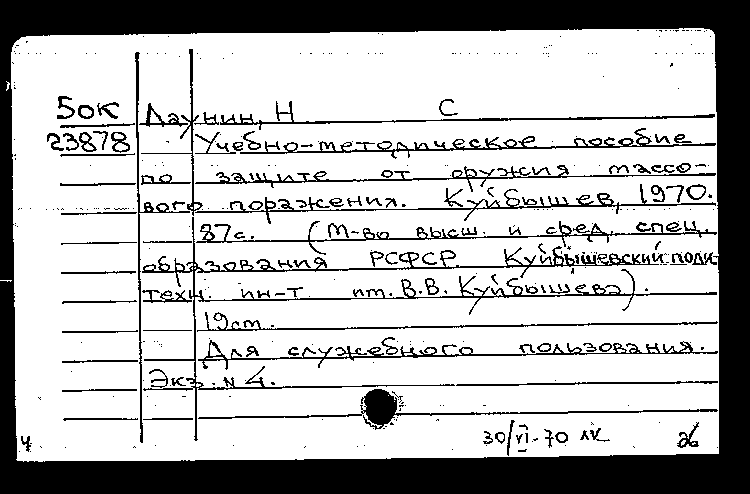 50К Лаунин, Н С
23878 Учебно-методическое пособие
по защите от оружия массо-
вого поражения. Куйбышев, 1970.
87с. (М-во высш. и сред. спец.
образования РСФСР. Куйбышевский поли-
техн. ин-т им. В.В. Куйбышева).
19см.
Для служебного пользования.
Экз. N 4.
4 30/VI-70